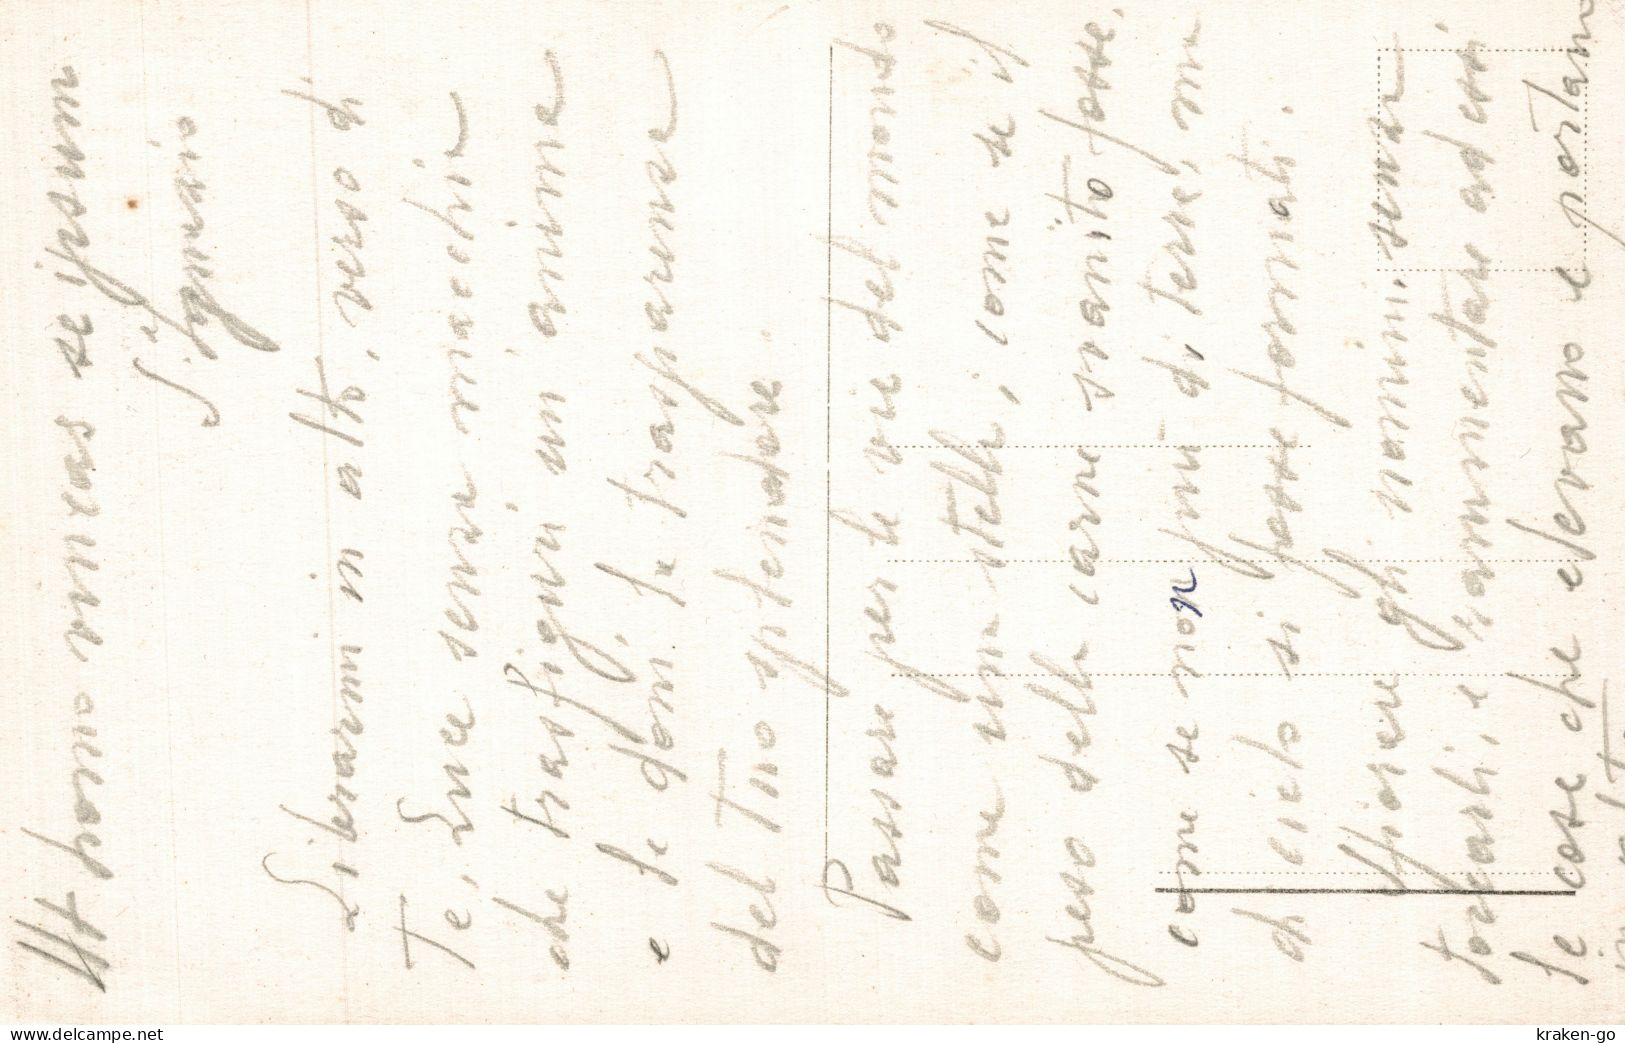 Ut homo vincas te ipsum
Signore
Librarmi in alto, verso di
Te, Luce senza macchia
che trasfiguri un anima
e le doni la trasparenza
del Tuo splendore.
Passare per le vie del mondo
come una stella, come se il
peso della carne svanito fosse,
come se non più di terra, ma
di cielo si fosse formati.
Sfiorare gli uomini senza
toccarli, e rammentare ad essi
le cose che elevano e portano
in alto
www.delcampe.net
kraken-go